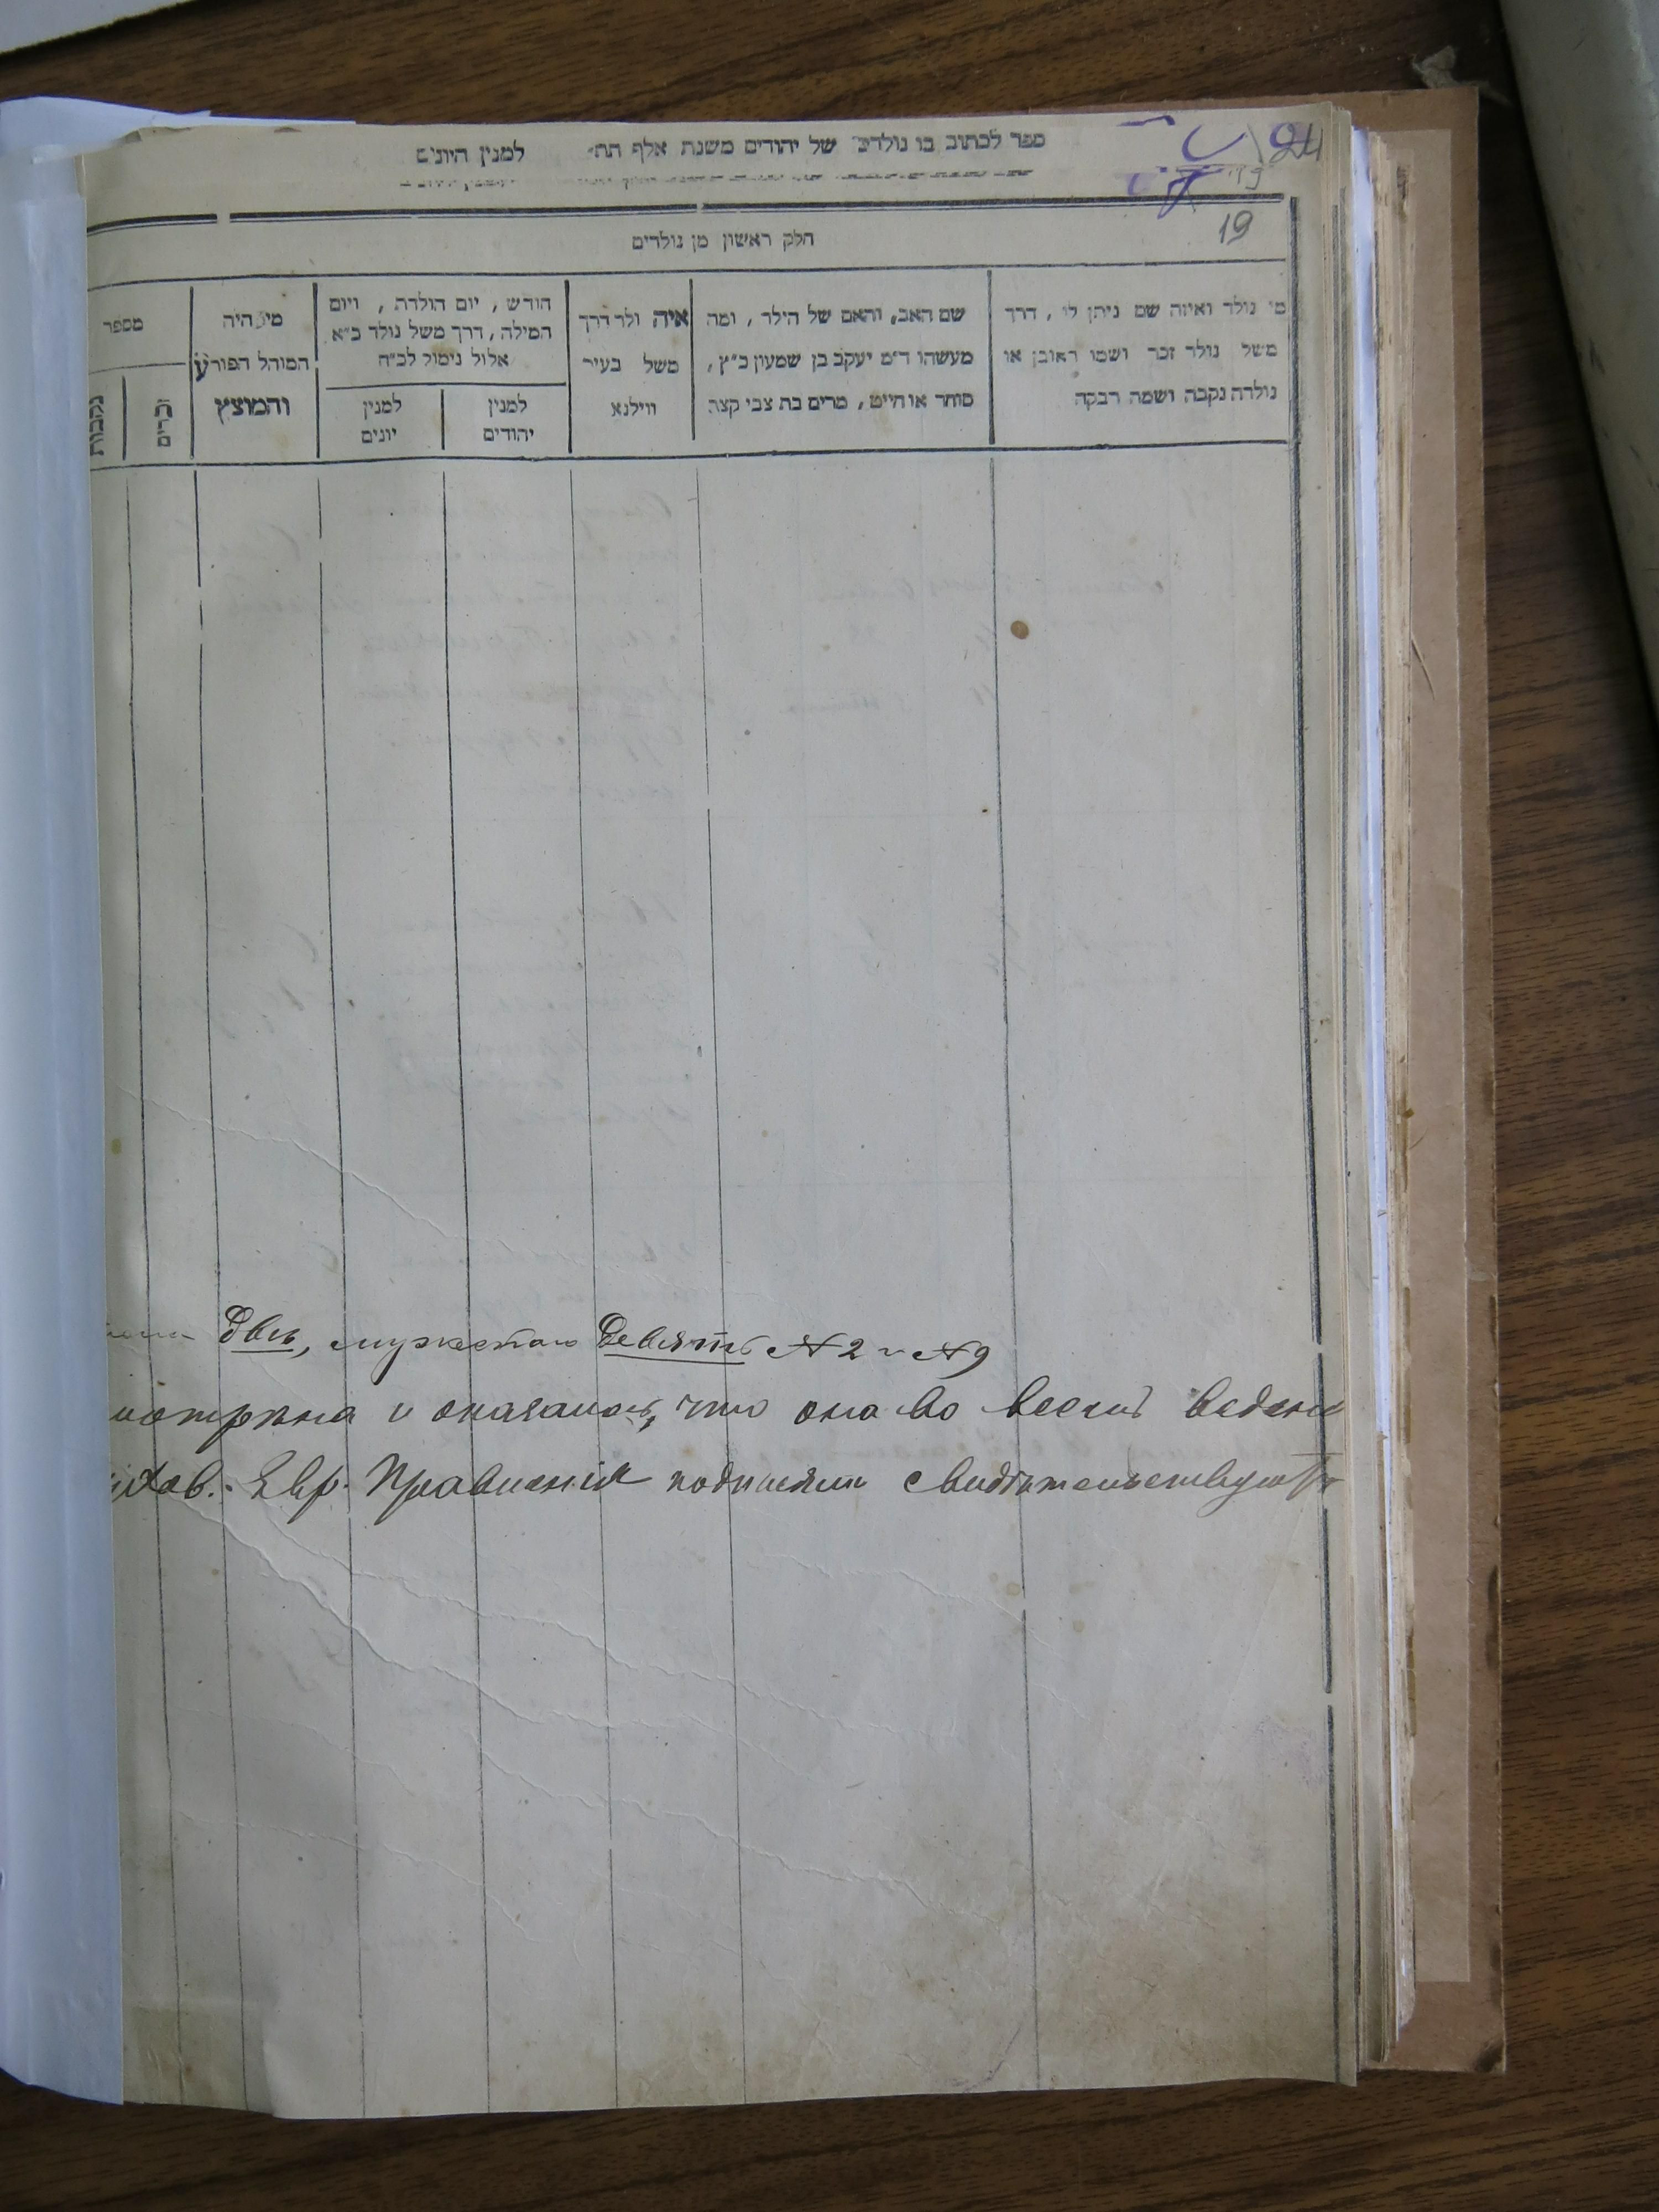 24
ספר לכתוב בו נולדים של יהודים משנת אלף תת׳ למנין היונים
19
חלק ראשון מן נולדים
מי נולד ואיזה שם ניתן לו, דרך
משל נולד זכר ושמו ראובן או
נולדה נקבה ושמה רבקה
שם האב, והאם של הילד, ומה
מעשהו ד״מ יעקב בן שמעון כ״ץ,
סוחר או חייט, מרים בת צבי קצב
איה ולד דרך
משל בעיר
ווילנא
חודש, יום הולדת, ויום
המילה, דרך משל נולד כ״א
אלול נימול לכ״ח
למנין
יהודים
למנין
יונים
מי היה
המוהל הפורע
והמוצץ
מספר
זכרים
נקבות
двѣ, мужескаго девять № 2 и № 9
и оказалось, что она во всемъ
Евр. Правленія подписями свидѣтельствуетъ